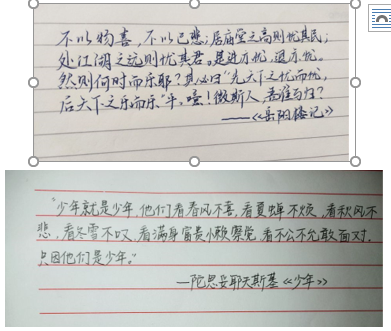 不以物喜，不以己悲；居庙堂之高则忧其民；
处江湖之远则忧其君。是进亦忧，退亦忧。
然则何时而乐耶？其必曰“先天下之忧而忧，
后天下之乐而乐”乎。噫！微斯人，吾谁与归？
——《岳阳楼记》
“少年就是少年，他们看春风不喜，看夏蝉不烦，看秋风不
悲，看冬雪不叹，看满身富贵懒察觉，看不公不允敢面对，
只因他们是少年。”
—陀思妥耶夫斯基《少年》